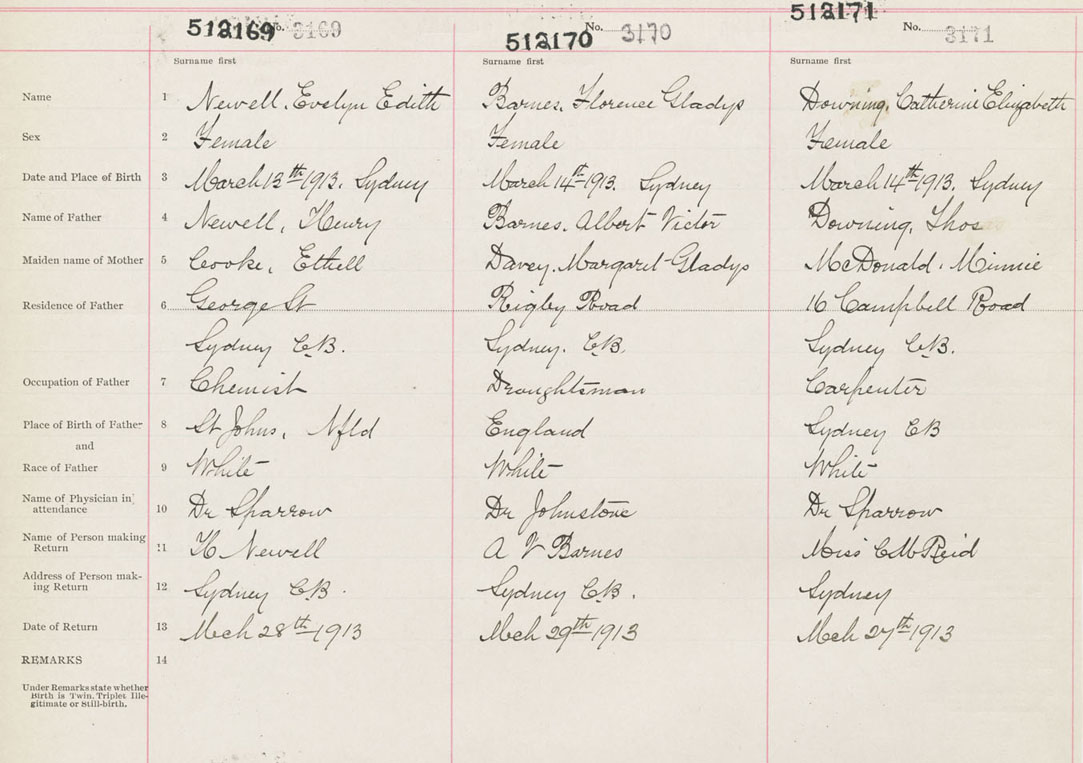 512169 No. 3169 512170 No. 3170 512171 No. 3171
Surname first Surname first Surname first
Name 1 Newell, Evelyn Edith Barnes, Florence Gladys Downing, Catherine Elizabeth
Sex 2 Female Female Female
Date and Place of Birth 3 March 13th 1913. Sydney March 14th 1913. Sydney March 14th 1913. Sydney
Name of Father 4 Newell, Henry Barnes, Albert Victor Downing, Thos
Maiden name of Mother 5 Cooke, Ethell Davey, Margaret Gladys McDonald, Minnie
Residence of Father 6 George St Rigby Road 16 Campbell Road
Sydney C.B. Sydney. C.B. Sydney C.B.
Occupation of Father 7 Chemist Draughtsman Carpenter
Place of Birth of Father 8 St Johns, Nfld England Sydney CB
and
Race of Father 9 White White White
Name of Physician in
attendance 10 Dr Sparrow Dr Johnstone Dr Sparrow
Name of Person making
Return 11 H Newell A V Barnes Miss C McReid
Address of Person mak-
ing Return 12 Sydney C.B. Sydney C.B. Sydney
Date of Return 13 Mch 28th 1913 Mch 29th 1913 Mch 27th 1913
REMARKS 14
Under Remarks state whether
Birth is Twin, Triplet Ille-
gitimate or Still-birth.